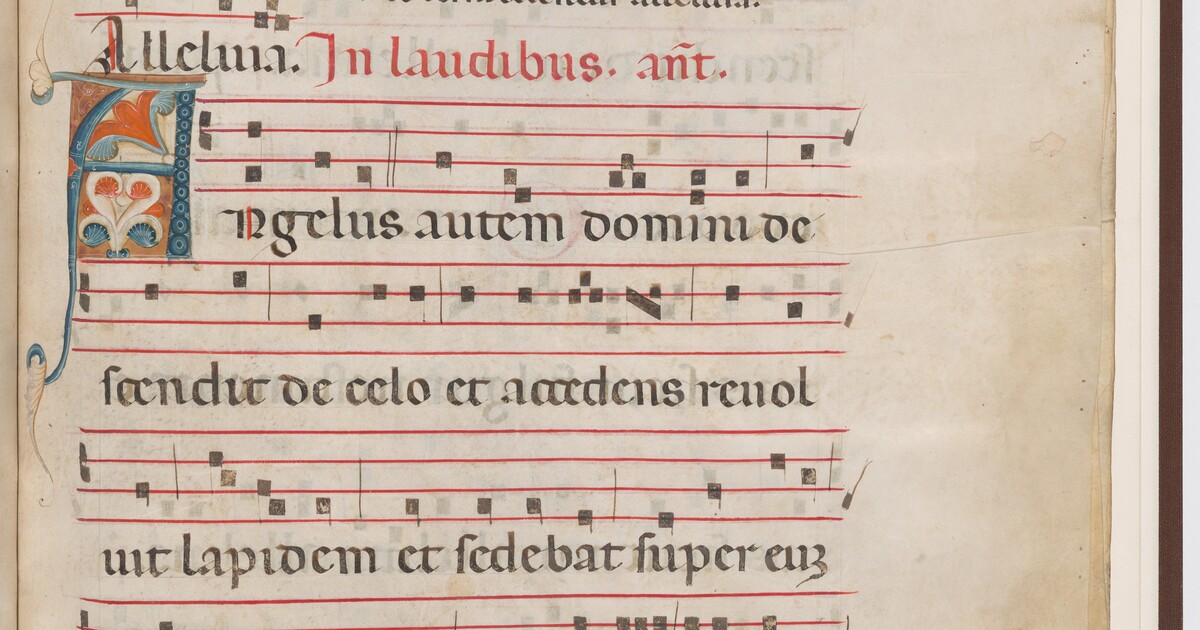 Alleluia. In laudibus. añt.
Angelus autem domini de
scendit de celo et accedens reuol
uit lapidem et sedebat super euʒ